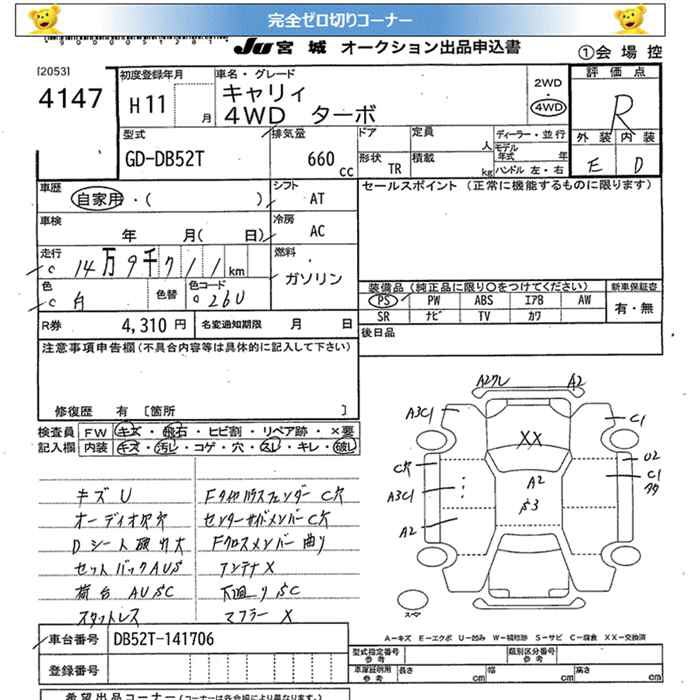 完全ゼロ切りコーナー
Ju 宮城 オークション出品申込書
①会場控
[2053]
4147
初度登録年月
H11
月
車名・グレード
キャリィ
4WD ターボ
2WD
・
4WD
評価点
R
型式
GD-DB52T
排気量
660
cc
ドア
定員
人
ディーラー・並行
モデル年式
年
形状
TR
積載
kg
ハンドル 左・右
外装 内装
E D
車歴
自家用・( )
シフト
AT
セールスポイント (正常に機能するものに限ります)
車検
年 月( 日)
冷房
AC
走行
c 14万9千711km
燃料
ガソリン
色
c 白
色替
色コード
26U
装備品 (純正品に限り○をつけてください)
新車保証書
PS PW ABS エアB AW
SR ナビ TV カワ
有・無
R券 4,310円
名変通知期限 月 日
後日品
注意事項申告欄(不具合内容等は具体的に記入して下さい)
修復歴 有 [箇所 ]
検査員 FW キズ・飛石・ヒビ割・リペア跡・×要
記入欄 内装 キズ・汚レ・コゲ・穴・スレ・キレ・破レ
キズU
オーディオ穴穴
Dシート破れ大
セットバックAUS
荷台AUSC
スタットレス
Fタイヤハウスフェンダー C穴
センターサイドメンバーC穴
Fクロスメンバー曲り
アンテナX
下廻りSC
マフラーX
A2 A3C1 C1
XX
U2
C穴 A2 C1
A3C1 S3
A2
スペア
A-キズ E-エクボ U-凹み W-補修跡 S-サビ C-腐食 XX-交換済
車台番号 DB52T-141706
登録番号
型式指定番号 参考
類別区分番号 参考
車庫証明用 参考
長さ cm 幅 cm 高さ cm
希望出品コーナー(コーナーは各会場により異なります。)